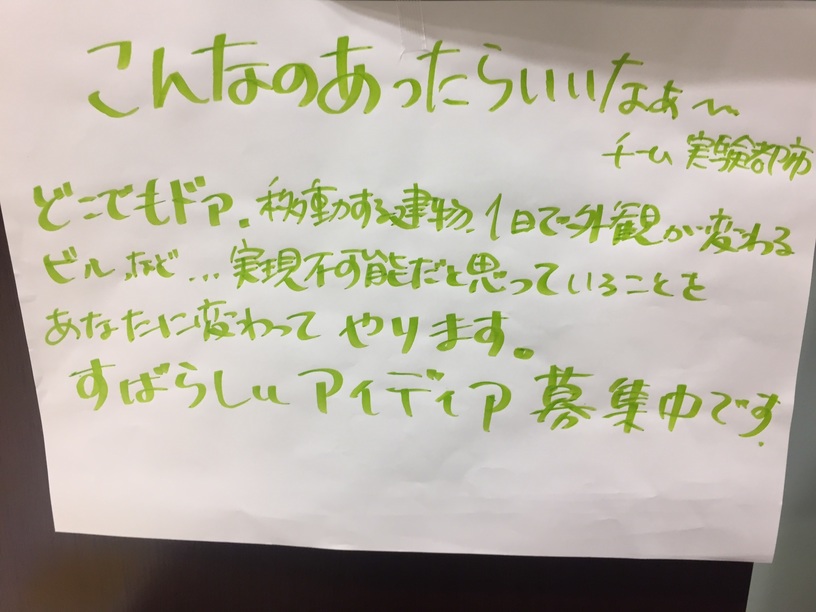 こんなのあったらいいなぁ〜
チーム 実験都市
どこでもドア、移動する建物、1日で外観が変わる
ビル、など...実現不可能だと思っていることを
あなたに変わって やります。
すばらしいアイディア募集中です.